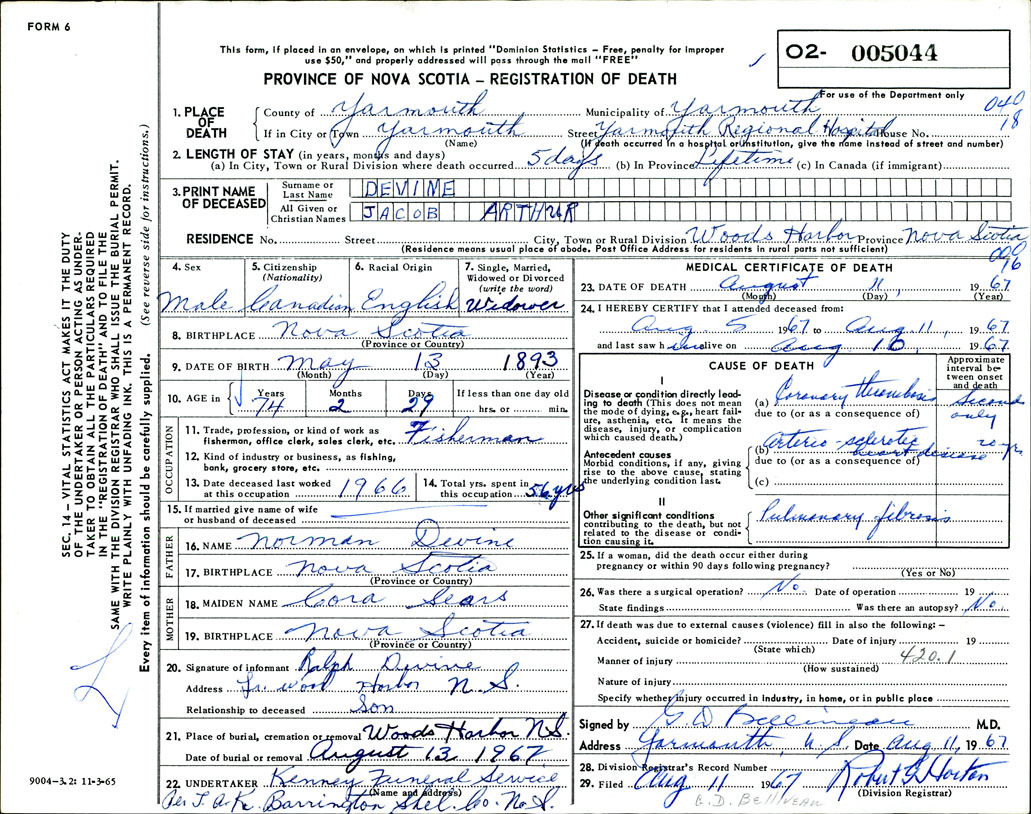 FORM 6
This form, if placed in an envelope, on which is printed "Dominion Statistics – Free, penalty for improper
use $50," and properly addressed will pass through the mail "FREE"
PROVINCE OF NOVA SCOTIA – REGISTRATION OF DEATH
O2- 005044
For use of the Department only
040
18
1. PLACE OF DEATH
County of Yarmouth Municipality of Yarmouth
If in City or Town Yarmouth Street Yarmouth Regional Hospital House No.
(Name) (If death occurred in a hospital or institution, give the name instead of street and number)
2. LENGTH OF STAY (in years, months and days)
(a) In City, Town or Rural Division where death occurred. 5 days (b) In Province Lifetime (c) In Canada (if immigrant)
3. PRINT NAME OF DECEASED
Surname or Last Name DEVINE
All Given or Christian Names JACOB ARTHUR
RESIDENCE No. Street City, Town or Rural Division Woods Harbor Province Nova Scotia
(Residence means usual place of abode. Post Office Address for residents in rural parts not sufficient)
090
96
4. Sex Male
5. Citizenship (Nationality) Canadian
6. Racial Origin English
7. Single, Married, Widowed or Divorced (write the word) Widower
8. BIRTHPLACE Nova Scotia
(Province or Country)
9. DATE OF BIRTH May 13 1893
(Month) (Day) (Year)
10. AGE in Years Months Days If less than one day old
74 2 29 hrs. or min.
OCCUPATION
11. Trade, profession, or kind of work as
fisherman, office clerk, sales clerk, etc. Fisherman
12. Kind of industry or business, as fishing,
bank, grocery store, etc.
13. Date deceased last worked
at this occupation 1966
14. Total yrs. spent in
this occupation 56 yrs
15. If married give name of wife
or husband of deceased
FATHER
16. NAME Norman Devine
17. BIRTHPLACE Nova Scotia
(Province or Country)
MOTHER
18. MAIDEN NAME Cora Sears
19. BIRTHPLACE Nova Scotia
(Province or Country)
20. Signature of informant Ralph Devine
Address Lr. Wood Harbor N.S.
Relationship to deceased Son
21. Place of burial, cremation or removal Woods Harbor N.S.
Date of burial or removal August 13 1967
22. UNDERTAKER Kenney Funeral Service
(Name and address)
Per J. A. K. Barrington Shel. Co. N.S.
MEDICAL CERTIFICATE OF DEATH
23. DATE OF DEATH August 11, 1967
(Month) (Day) (Year)
24. I HEREBY CERTIFY that I attended deceased from:
Aug. 5 1967 to Aug. 11, 1967
and last saw him alive on Aug 10, 1967
CAUSE OF DEATH
Approximate interval between onset and death
I
Disease or condition directly lead-
ing to death (This does not mean
the mode of dying, e.g., heart fail-
ure, asthenia, etc. It means the
disease, injury, or complication
which caused death.)
(a) Coronary thrombosis Seconds only
due to (or as a consequence of)
Antecedent causes
Morbid conditions, if any, giving
rise to the above cause, stating
the underlying condition last.
(b) Arterio-sclerotic heart disease 20 yr
due to (or as a consequence of)
(c)
II
Other significant conditions
contributing to the death, but not
related to the disease or condi-
tion causing it.
Pulmonary fibrosis
25. If a woman, did the death occur either during
pregnancy or within 90 days following pregnancy?
(Yes or No)
26. Was there a surgical operation? No Date of operation 19
State findings Was there an autopsy? No
27. If death was due to external causes (violence) fill in also the following: –
Accident, suicide or homicide? Date of injury 19
(State which)
420.1
Manner of injury
(How sustained)
Nature of injury
Specify whether injury occurred in industry, in home, or in public place
Signed by G D Belliveau M.D.
Address Yarmouth, N.S. Date Aug 11, 1967
28. Division Registrar's Record Number
29. Filed Aug 11 1967 Robert G Horton
(Division Registrar)
G.D. BELLIVEAU
SEC. 14 – VITAL STATISTICS ACT MAKES IT THE DUTY
OF THE UNDERTAKER OR PERSON ACTING AS UNDER-
TAKER TO OBTAIN ALL THE PARTICULARS REQUIRED
IN THE "REGISTRATION OF DEATH" AND TO FILE THE
SAME WITH THE DIVISION REGISTRAR WHO SHALL ISSUE THE BURIAL PERMIT.
WRITE PLAINLY WITH UNFADING INK. THIS IS A PERMANENT RECORD.
Every item of information should be carefully supplied. (See reverse side for instructions.)
9004-3.2: 11-3-65